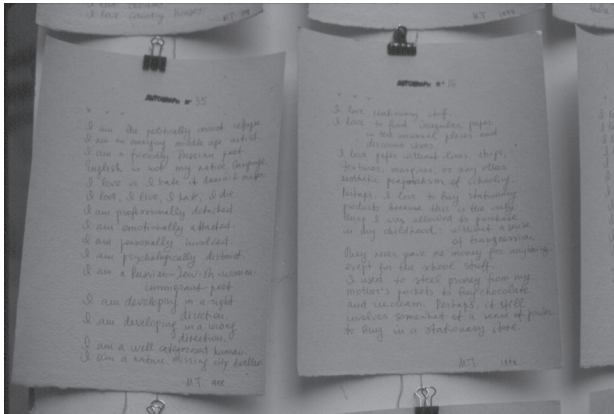 I love country houses.
M.T. 1998
AUTOGRAPH № 35
I am the politically correct refugee
I am an emerging middle age artist.
I am a friendly Siberian poet
English is not my native language.
I love or I hate it doesn't matter
I love, I live, I hate, I die.
I am professionally detached.
I am emotionally attached.
I am personally involved.
I am psychologically distant.
I am a Russian-Jewish-woman-
immigrant-poet
I am developing in a right
direction.
I am developing in a wrong
direction.
I am a well categorized human.
I am a nature missing city dweller.
M.T. 1998
M.T. 1998
AUTOGRAPH № 16
I love stationary stuff.
I love to find irregular paper
in the unusual places and
discount stores.
I love paper without lines, strips,
textures, margins, or any other
symbolic preparation of schooling.
Perhaps, I love to buy stationary
products because this is the only
thing I was allowed to purchase
in my childhood: without a sense
of transgression
They never gave me money for anything
exept for the school stuff.
I used to steel money from my
mother's pockets to buy chocolate
and icecream. Perhaps, it still
involves somewhat of a sense of power
to buy in a stationary store.
M.T. 1998